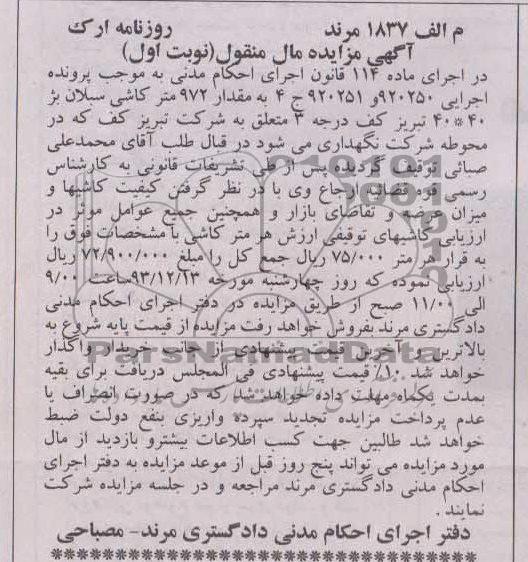 م الف ۱۸۳۷ مرند روزنامه ارک
آگهی مزایده مال منقول(نوبت اول)
در اجرای ماده ۱۱۴ قانون اجرای احکام مدنی به موجب پرونده
اجرایی ۹۲۰۲۵۰و ۹۲۰۲۵۱ ج ۴ به مقدار ۹۷۲ متر کاشی سبلان بژ
۴۰*۴۰ تبریز کف درجه ۳ متعلق به شرکت تبریز کف که در
محوطه شرکت نگهداری می شود در قبال طلب آقای محمدعلی
صبائی توقیف گردیده پس از طی تشریفات قانونی به کارشناس
رسمی قوه قضائیه ارجاع وی با در نظر گرفتن کیفیت کاشیها و
میزان عرضه و تقاضای بازار و همچنین جمیع عوامل موثر در
ارزیابی کاشیهای توقیفی ارزش هر متر کاشی با مشخصات فوق را
به قرار هر متر ۷۵/۰۰۰ ریال جمع کل را مبلغ ۷۲/۹۰۰/۰۰۰ ریال
ارزیابی نموده که روز چهارشنبه مورخه ۹۳/۱۲/۱۳ساعت ۹/۰۰
الی ۱۱/۰۰ صبح از طریق مزایده در دفتر اجرای احکام مدنی
دادگستری مرند بفروش خواهد رفت مزایده از قیمت پایه شروع به
بالاترین و آخرین قیمت پیشنهادی از جانب خریدار واگذار
خواهد شد ۱۰٪ قیمت پیشنهادی فی المجلس دریافت برای بقیه
بمدت یکماه مهلت داده خواهد شد که در صورت انصراف یا
عدم پرداخت مزایده تجدید سپرده واریزی بنفع دولت ضبط
خواهد شد طالبین جهت کسب اطلاعات بیشترو بازدید از مال
مورد مزایده می تواند پنج روز قبل از موعد مزایده به دفتر اجرای
احکام مدنی دادگستری مرند مراجعه و در جلسه مزایده شرکت
نمایند .
دفتر اجرای احکام مدنی دادگستری مرند- مصباحی
ParsNamadData